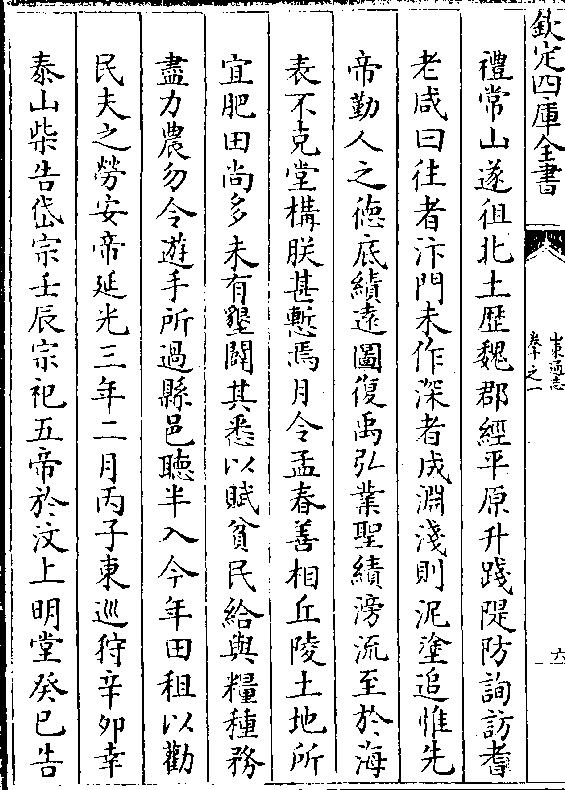 欽定四庫全書
山東通志
卷十之一
六
禮常山遂徂北土歷魏郡經平原升踐隄防詢訪耆
老咸曰往者汴門未作深者成淵淺則泥塗追惟先
帝勤人之德底績遠圖復禹弘業聖績滂流至於海
表不克堂構朕甚慙焉月令孟春善相丘陵土地所
宜肥田尚多未有墾闢其悉以賦貧民給與糧種務
盡力農勿令遊手所過縣邑聽半入今年田租以勸
民夫之勞安帝延光三年二月丙子東巡狩辛卯幸
泰山柴告岱宗壬辰宗祀五帝於汶上明堂癸巳告